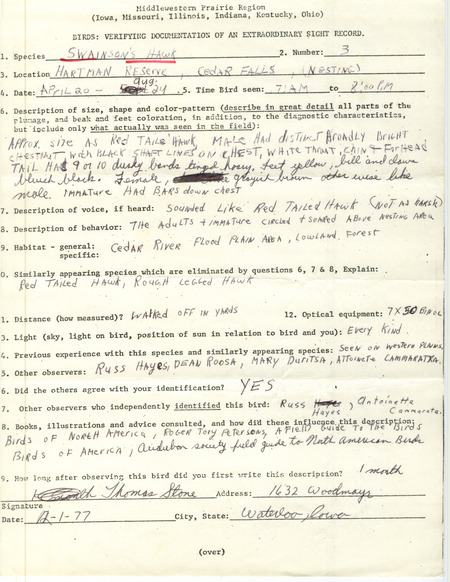 Middlewestern Prairie Region
(Iowa, Missouri, Illinois, Indiana, Kentucky, Ohio)
BIRDS: VERIFYING DOCUMENTATION OF AN EXTRAORDINARY SIGHT RECORD.
1. Species SWAINSON'S HAWK 2. Number: 3
3. Location HARTMAN RESERVE, CEDAR FALLS, (NESTING)
4. Date: APRIL 20 - Aug. 24 5. Time Bird seen: 7AM to 2:00 P.M
6. Description of size, shape and color-pattern (describe in great detail all parts of the
plumage, and beak and feet coloration, in addition, to the diagnostic characteristics,
but include only what actually was seen in the field):
Approx size as Red Taile Hawk, Male Had distinct Broadly Bright
chestnut with BLACK SHAFT LINES ON CHEST, WHITE THROAT, CHIN + ForHEAD
TAIL HAS 9 or 10 dusky bands, feet yellow, bill and claws
bluish black. Female, grayish brown other wise like
male. IMMATURE HAD BARS down CHEST
7. Description of voice, if heard: SOUNDED LIKE RED TAILED HAWK (NOT AS HARSH)
8. Description of behavior: THE AdulTS + IMMATURE CIRCLED + SOARED ABOVE NESTING AREA
9. Habitat - general: CEDAR RIVER FLOOD PLAIN AREA, LOWLAND FOREST
specific:
0. Similarly appearing species which are eliminated by questions 6, 7 & 8, Explain:
RED TAILED HAWK, ROUGH LEGGED HAWK
1. Distance (how measured)? WALKED OFF IN YARDS 12. Optical equipment: 7X50 Binoc
3. Light (sky, light on bird, position of sun in relation to bird and you): Every Kind.
4. Previous experience with this species and similarly appearing species: SEEN ON WESTERN PLAINS.
5. Other observers: RUSS HAYES, DEAN ROOSA, MARY DURITSA, ANTOINETTE CAMMARATA.
6. Did the others agree with your identification? YES
7. Other observers who independently identified this bird: Russ Hayes, Antoinette
Cammarata.
8. Books, illustrations and advice consulted, and how did these influence this description:
Birds of North America, Roger Tory Petersons, A Field Guide To The Birds
Birds of America, Audubon society field guide to North American Birds
9. How long after observing this bird did you first write this description? 1 month
Thomas Stone Address: 1632 Woodmayr
Signature
Date: 12-1-77 City, State: Waterloo, Iowa
(over)